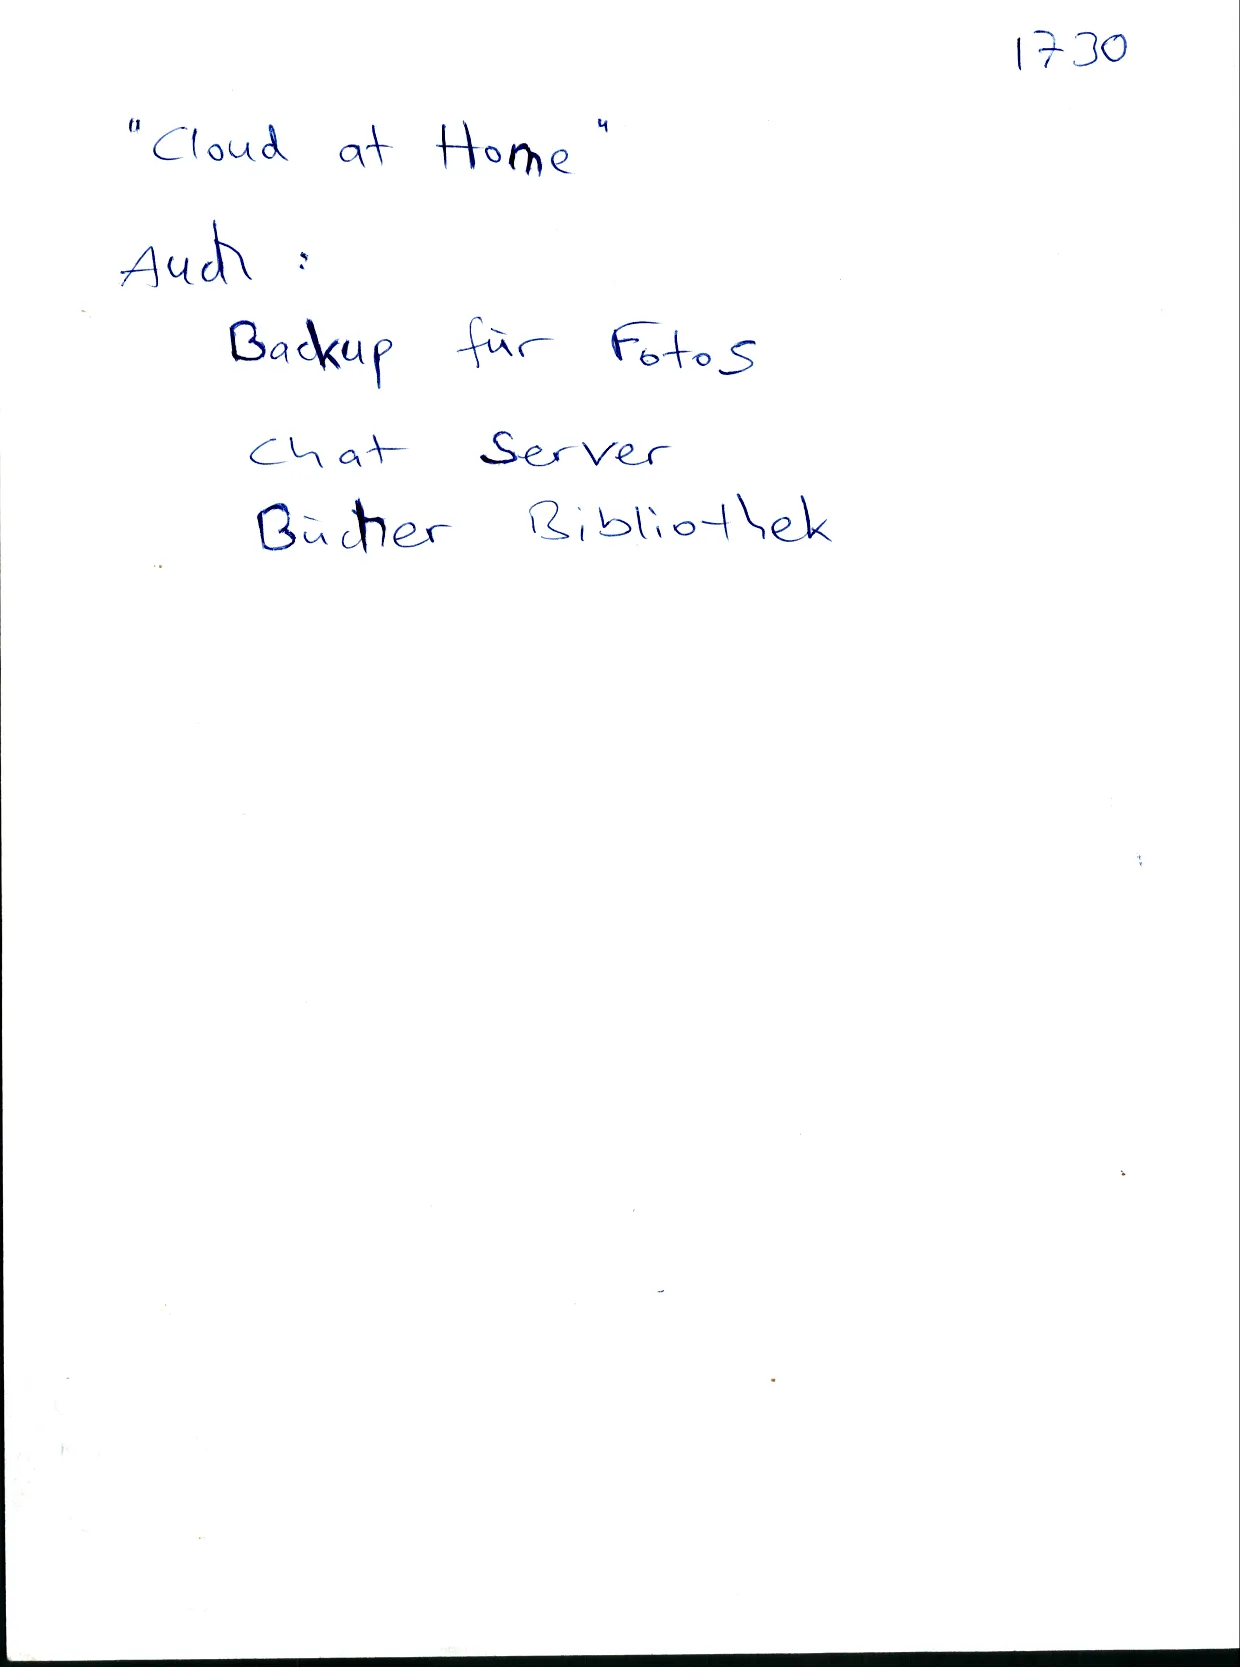 1730
"Cloud at Home"
Auch:
Backup für Fotos
Chat Server
Bücher Bibliothek